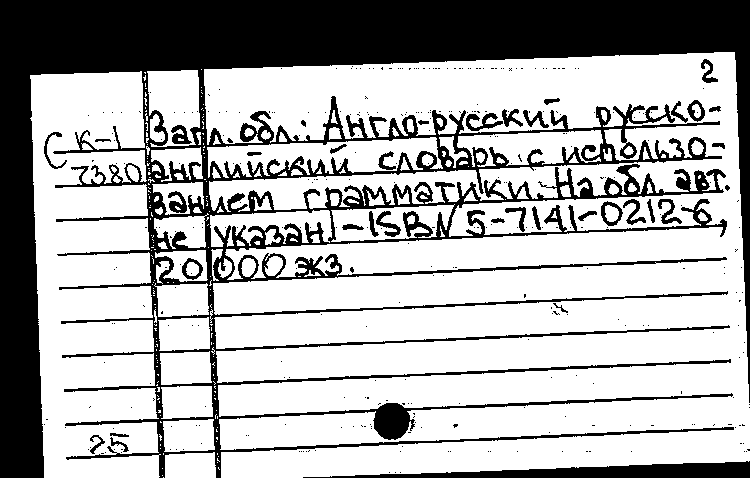 2
С К-1 Загл. обл.: Англо-русский русско-
7380 английский словарь с использо-
ванием грамматики. На обл. авт.
не указан. - ISBN 5-7141-0212-6,
20 000 экз.
25